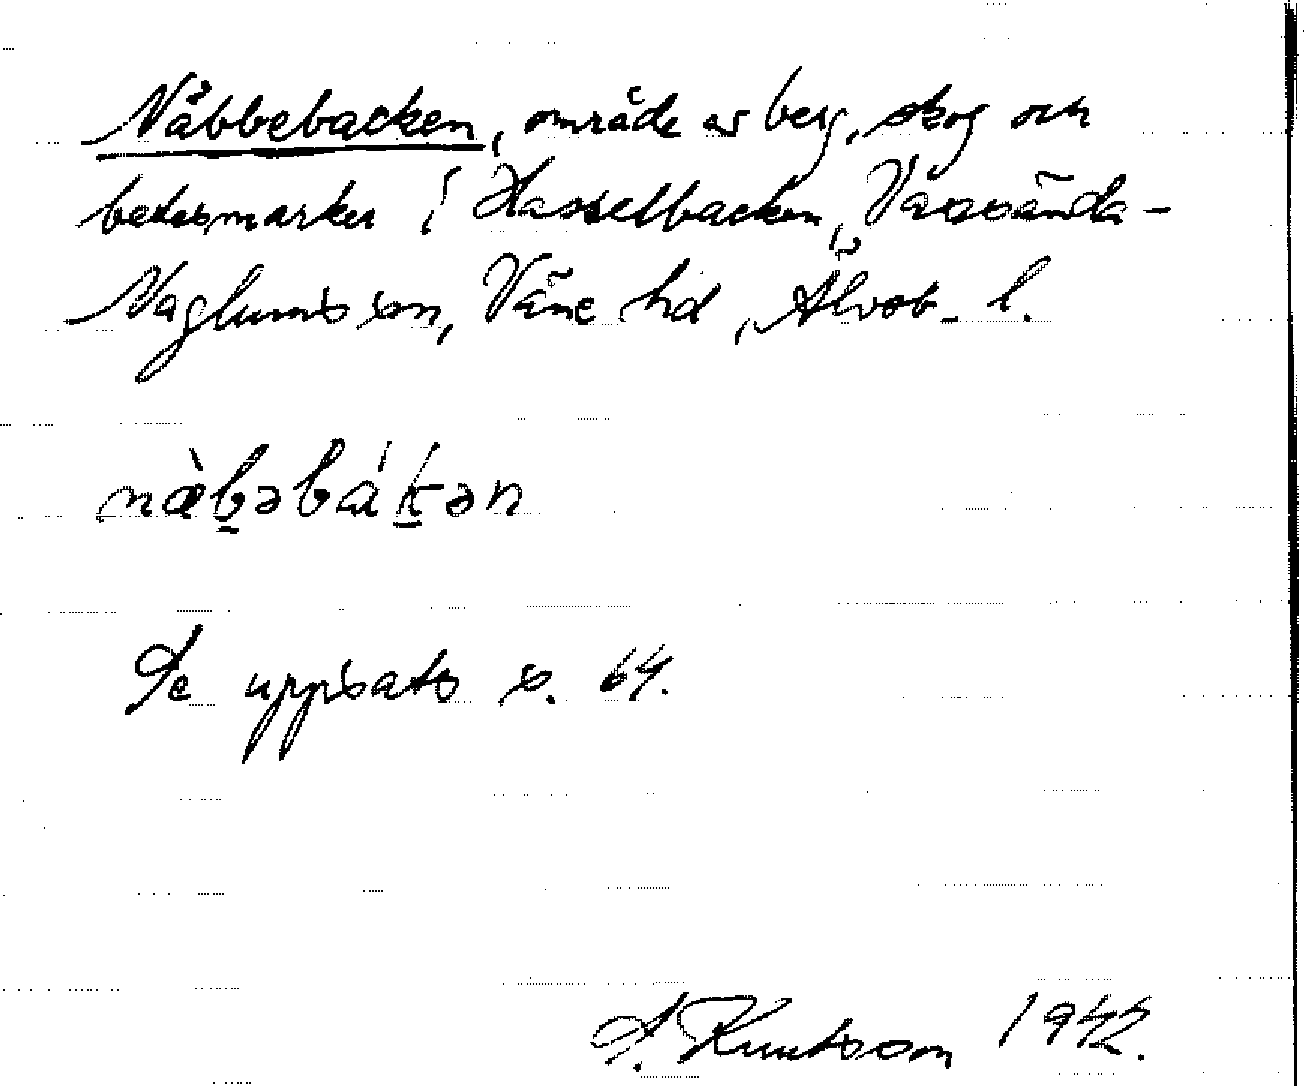 Näbbebacken, område av berg, skog och
betesmarker i Hasselbacken, Vassända-
Naglums sn, Väne hd, Älvsb. l.
næ̀b̠əbák̠ən
Se uppsats s. 64.
A. Knutsson 1942.